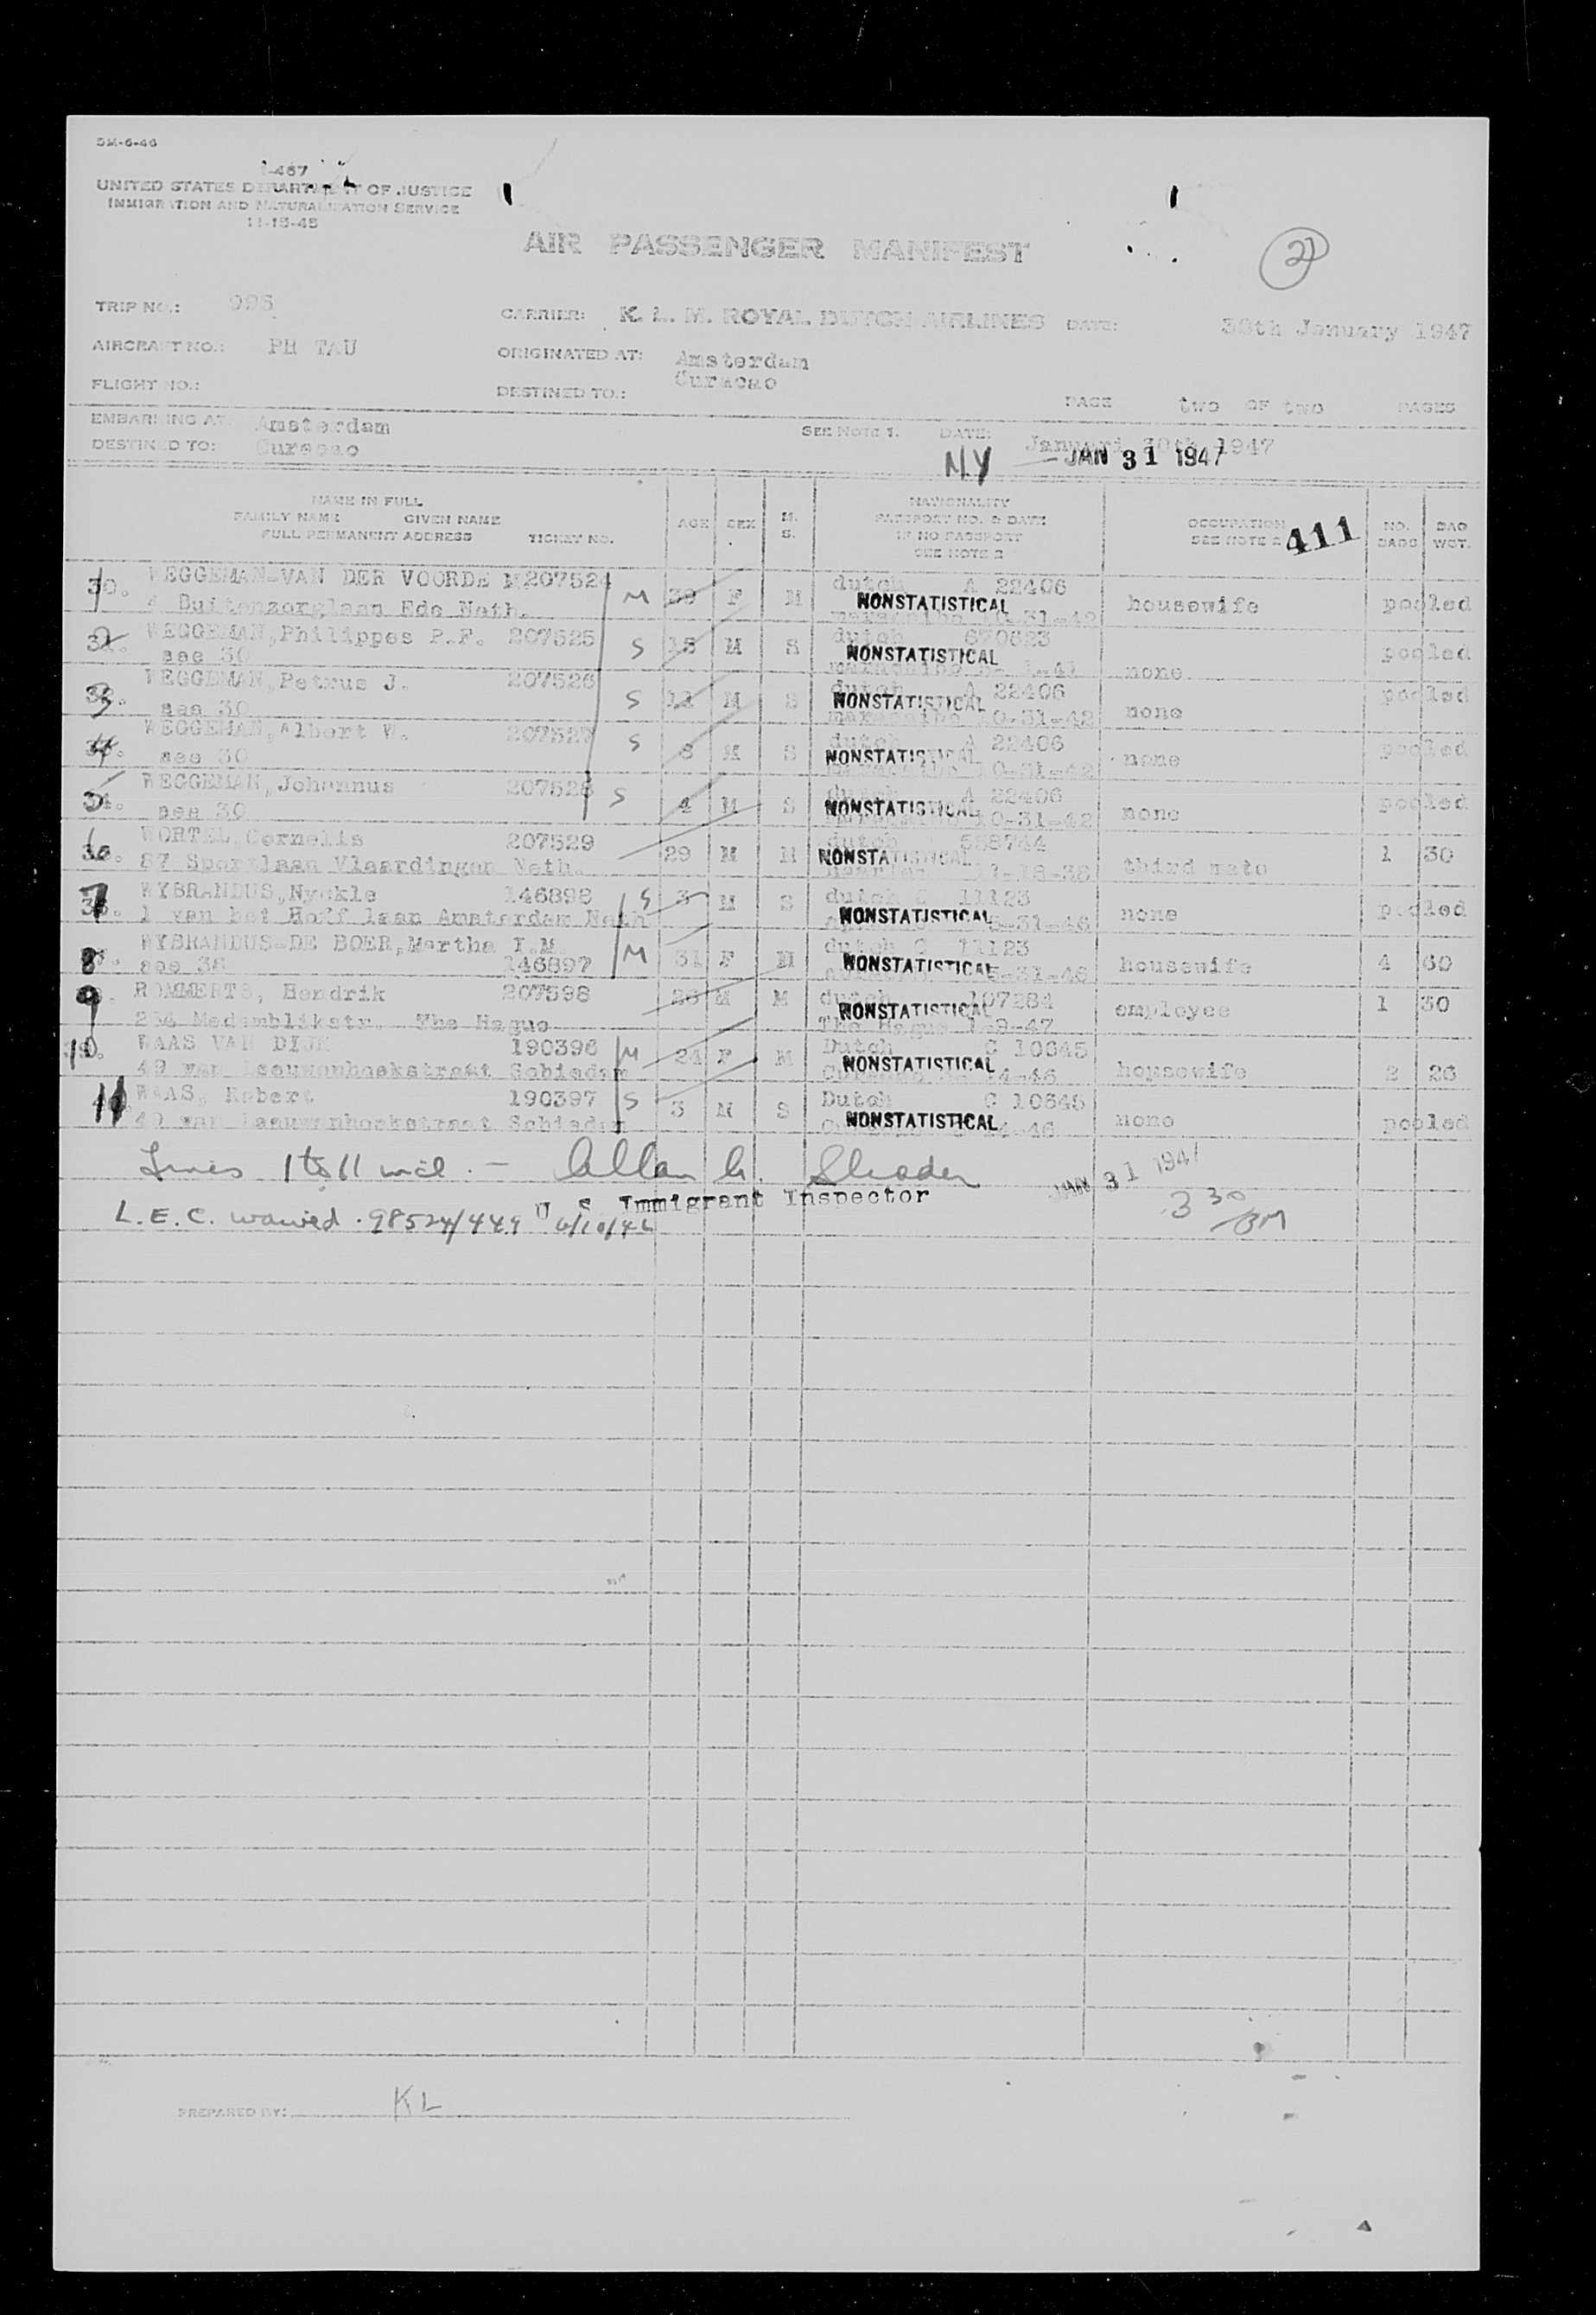 5M-6-46
I-467
UNITED STATES DEPARTMENT OF JUSTICE
IMMIGRATION AND NATURALIZATION SERVICE
11-15-45
AIR PASSENGER MANIFEST
2
TRIP NO.: 996
CARRIER: K. L. M. ROYAL DUTCH AIRLINES DATE: 30th January 1947
AIRCRAFT NO.: PH TAU
ORIGINATED AT: Amsterdam
FLIGHT NO.:
DESTINED TO.: Curacao
PAGE two OF two PAGES
EMBARKING AT Amsterdam
SEE NOTE 1. DATE: Januari 30th 1947
DESTINED TO: Curacao
NY JAN 31 1947
NAME IN FULL
FAMILY NAME GIVEN NAME
FULL PERMANENT ADDRESS TICKET NO.
AGE SEX M. S.
NATIONALITY
PASSPORT NO. & DATE
IF NO PASSPORT
SEE NOTE 2
OCCUPATION
SEE NOTE 2 411
NO. BAGS BAG WGT.
30. WEGGEMAN-VAN DER VOORDE 207524 M 39 F M dutch A 22406 housewife pooled
4 Buitenzorglaan Ede Neth. NONSTATISTICAL maracaibo 10-31-42
WEGGEMAN, Philippes P.F. 207525 S 15 M S dutch 670623 none pooled
see 30 NONSTATISTICAL
WEGGEMAN, Petrus J. 207526 S 11 M S dutch A 22406 none pooled
see 30 NONSTATISTICAL maracaibo 10-31-42
WEGGEMAN, Albert W. 207527 S 8 M S dutch A 22406 none pooled
see 30 NONSTATISTICAL 10-31-42
WEGGEMAN, Johannus 207528 S 4 M S dutch A 22406 none pooled
see 30 NONSTATISTICAL 10-31-42
WORTEL, Cornelis 207529 29 M M dutch third mate 1 30
87 Sportlaan Vlaardingen Neth. NONSTATISTICAL
7 WYBRANDUS, Nyckle 146898 S 3 M S dutch C 11123 none pooled
1 van het Hoff laan Amsterdam Neth NONSTATISTICAL 5-31-46
8 WYBRANDUS-DE BOER, Martha I.M. M 31 F M dutch C 11123 housewife 4 60
see 36 146897 NONSTATISTICAL 5-31-46
9 ROMMERTS, Hendrik 207598 26 M M dutch 107284 employee 1 30
234 Medemblikstr. The Hague NONSTATISTICAL The Hague 1-9-47
10 WAAS VAN DIJK 190396 M 24 F M Dutch C 10645 housewife 2 26
49 van Leeuwenhoekstraat Schiedam NONSTATISTICAL
11 WAAS, Robert 190397 S 3 M S Dutch C 10645 none pooled
49 van Leeuwenhoekstraat Schiedam NONSTATISTICAL
Lines 1 to 11 incl. — Allan G. Shader JAN 31 1947
U S Immigrant Inspector
3 30 PM
L.E.C. waived. 98524/449 6/10/46
PREPARED BY: KL